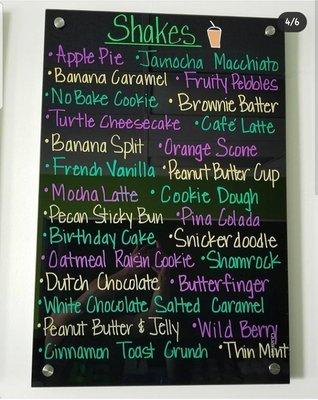 Shakes
4/6
•Apple Pie •Jamocha Macchiato
•Banana Caramel •Fruity Pebbles
•No Bake Cookie •Brownie Batter
•Turtle Cheesecake •Café Latte
•Banana Split •Orange Scone
•French Vanilla •Peanut Butter Cup
•Mocha Latte •Cookie Dough
•Pecan Sticky Bun •Pina Colada
•Birthday Cake •Snickerdoodle
•Oatmeal Raisin Cookie •Shamrock
•Dutch Chocolate •Butterfinger
•White Chocolate Salted Caramel
•Peanut Butter & Jelly •Wild Berry
•Cinnamon Toast Crunch •Thin Mint